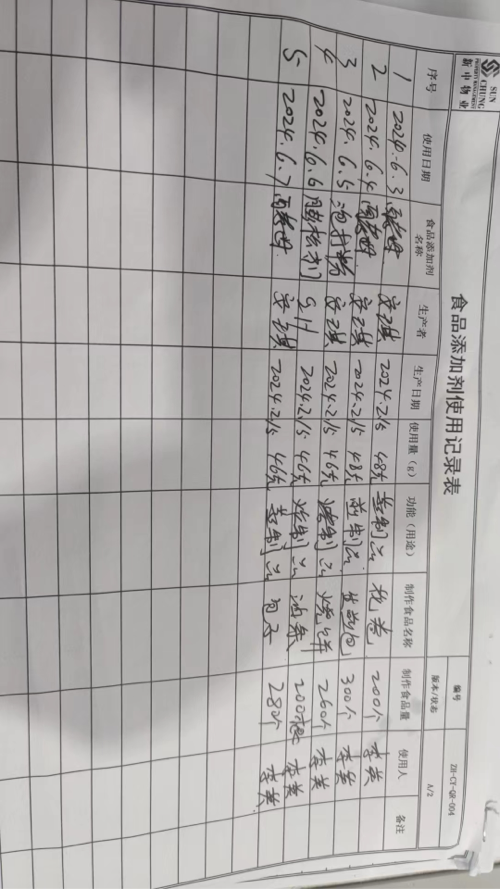 SUN CHUNG
PROPERTY MANAGEMENT
新中物业
食品添加剂使用记录表
编号 ZH-CY-QR-004
版本/状态 A/2
序号 使用日期 食品添加剂名称 生产者 生产日期 使用量（g） 功能（用途） 制作食品名称 制作食品量 使用人 备注
1 2024.6.3 2024.2.15 48克 蒸制品 花卷 200个 李英
2 2024.6.4 2024.2.15 48克 煎制品 生煎包 300个 李英
3 2024.6.5 泡打粉 2024.2.15 46克 烤制品 烧饼 260个 李英
4 2024.6.6 膨松剂 2024.2.15 46克 炸制品 油条 200根 李英
5 2024.6.7 2024.2.15 46克 蒸制品 包子 280个 李英